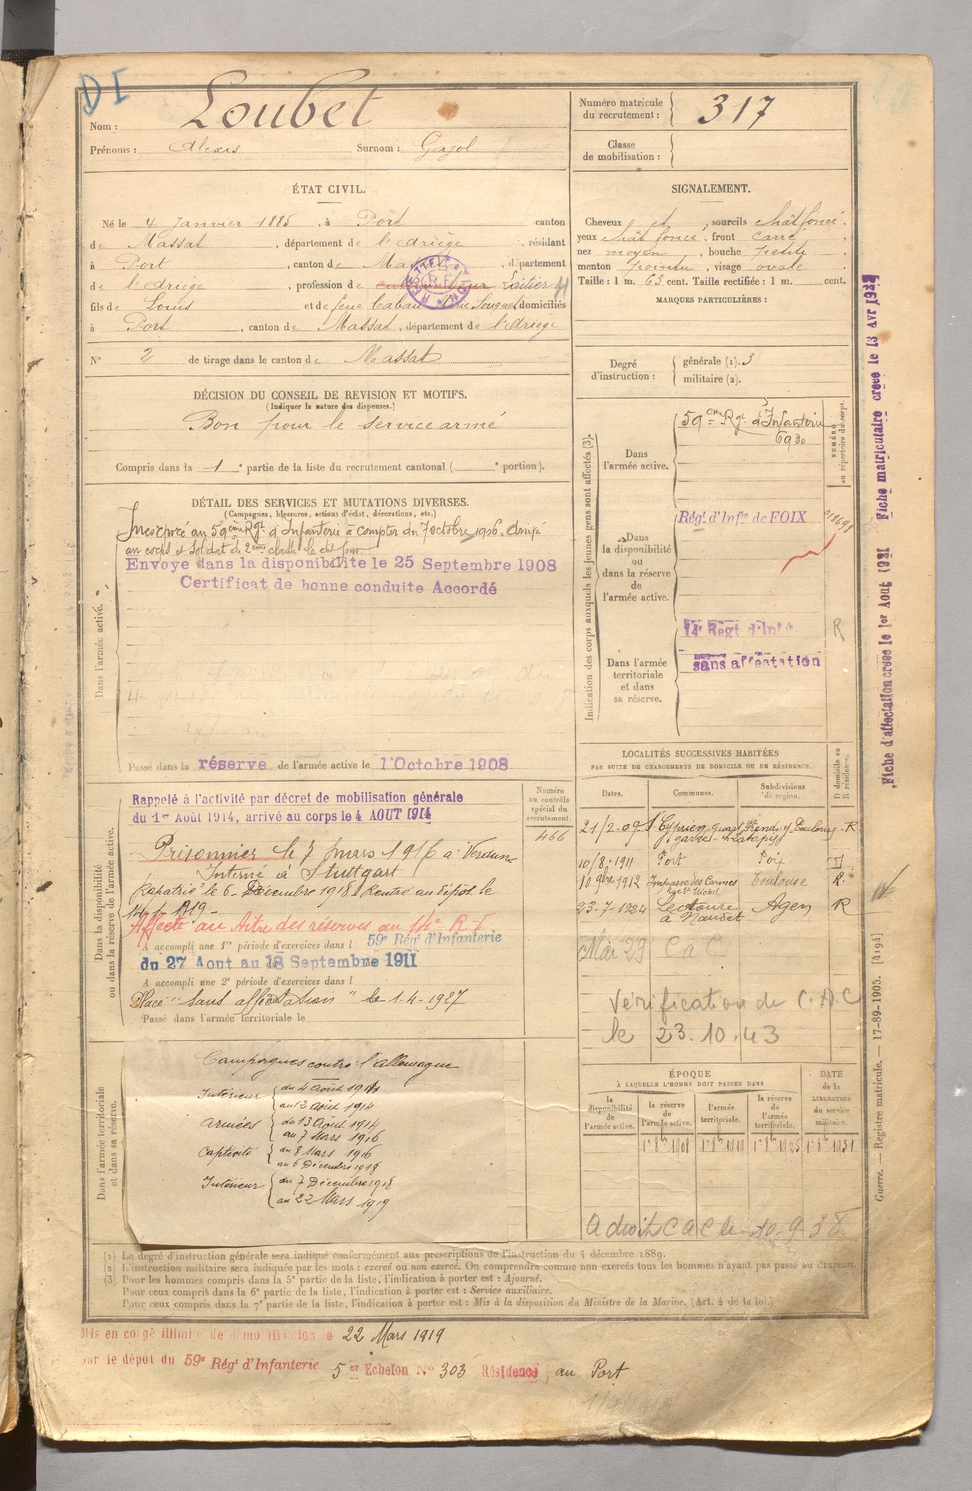 DI
Nom : Loubet
Prénoms : Alexis Surnom : Gajol
Numéro matricule du recrutement : 317
Classe de mobilisation :
ÉTAT CIVIL.
Né le 4 Janvier 1885, à Port canton
de Massat, département de l'Ariège, résidant
à Port, canton de Massat, département
de l'Ariège, profession de cultivateur Laitier
fils de Louis et de feue Cabau domiciliés
à Port, canton de Massat, département de l'Ariège
N° 2 de tirage dans le canton de Massat
SIGNALEMENT.
Cheveux et, sourcils chât foncé.
yeux chât foncé, front carré,
nez moyen, bouche petite,
menton pointu, visage ovale
Taille : 1 m. 65 cent. Taille rectifiée : 1 m. cent.
MARQUES PARTICULIÈRES :
Degré d'instruction : générale (1). 3
militaire (2).
DÉCISION DU CONSEIL DE REVISION ET MOTIFS.
(Indiquer la nature des dispenses.)
Bon pour le service armé
Compris dans la 1e partie de la liste du recrutement cantonal ( e portion).
DÉTAIL DES SERVICES ET MUTATIONS DIVERSES.
(Campagnes, blessures, actions d'éclat, décorations, etc.)
Dans l'armée active.
Incorporé au 59ème Rgt d'Infanterie à compter du 7 octobre 1906. Arrivé
au corps et soldat de 2ème classe le dit jour
Envoyé dans la disponibilité le 25 Septembre 1908
Certificat de bonne conduite Accordé
Passé dans la réserve de l'armée active le 1 Octobre 1908
Indication des corps auxquels les jeunes gens sont affectés (3).
NUMÉRO au répertoire du corps.
Dans l'armée active.
59ème Rgt d'Infanterie
6930
Dans la disponibilité ou dans la réserve de l'armée active.
Régt d'Infie de FOIX
Dans l'armée territoriale et dans sa réserve.
14e Regt d'Infie R
sans affectation
Dans la disponibilité ou dans la réserve de l'armée active.
Numéro au contrôle spécial du recrutement.
466
Rappelé à l'activité par décret de mobilisation générale
du 1er Août 1914, arrivé au corps le 4 AOUT 1914
Prisonnier le 7 mars 1916 à Verdun
Interné à Stuttgart
Rapatrié le 6 Décembre 1918. Rentré au dépôt le
Affecté au titre des réserves au 14e R-I
A accompli une 1re période d'exercices dans l 59e Rég' d'Infanterie
du 27 Aout au 18 Septembre 1911
A accompli une 2e période d'exercices dans l
Placé "sans affectation" le 1-4-1927
Passé dans l'armée territoriale le
LOCALITÉS SUCCESSIVES HABITÉES
PAR SUITE DE CHANGEMENTS DE DOMICILE OU DE RÉSIDENCE.
Dates. Communes. Subdivisions de région. D domicile ou R résidence.
21/2-09 St Cyprien Toulouse R
10/8-1911 Port Foix D
10 9bre 1912 Impasse des Carmes Toulouse R.
23-7-1924 Lectoure Agen R
Mai 29 C a C
Vérification du C.A.C
le 23.10.43
Dans l'armée territoriale et dans sa réserve.
Campagnes contre l'allemagne
Intérieur du 4 août 1914
au 12 août 1914
Armées du 13 Août 1914
au 7 Mars 1916
Captivité du 8 Mars 1916
au 6 Décembre 1918
Intérieur du 7 Décembre 1918
au 22 Mars 1919
ÉPOQUE
À LAQUELLE L'HOMME DOIT PASSER DANS
DATE de la LIBÉRATION du service militaire.
la disponibilité de l'armée active. la réserve de l'armée active. l'armée territoriale. la réserve de l'armée territoriale.
1er 8bre 1908 1er 8bre 1931
a droit C a C le 10-9-38
(1) Le degré d'instruction générale sera indiqué conformément aux prescriptions de l'instruction du 4 décembre 1889.
(2) L'instruction militaire sera indiquée par les mots : exercé ou non exercé. On comprendra comme non exercés tous les hommes n'ayant pas passé au drapeau.
(3) Pour les hommes compris dans la 5e partie de la liste, l'indication à porter est : Ajourné.
Pour ceux compris dans la 6e partie de la liste, l'indication à porter est : Service auxiliaire.
Pour ceux compris dans la 7e partie de la liste, l'indication à porter est : Mis à la disposition du Ministre de la Marine. (Art. 4 de la loi.)
Mis en congé illimité de démobilisation le 22 Mars 1919
par le dépôt du 59e Rég' d'Infanterie 5er Echelon N° 303 Résidence au Port
Fiche d'affectation créée le 1er Aout 1921
Fiche matriculaire créée le 13 Avr
Guerre. — Registre matricule. — 17-89-1905. [4194]